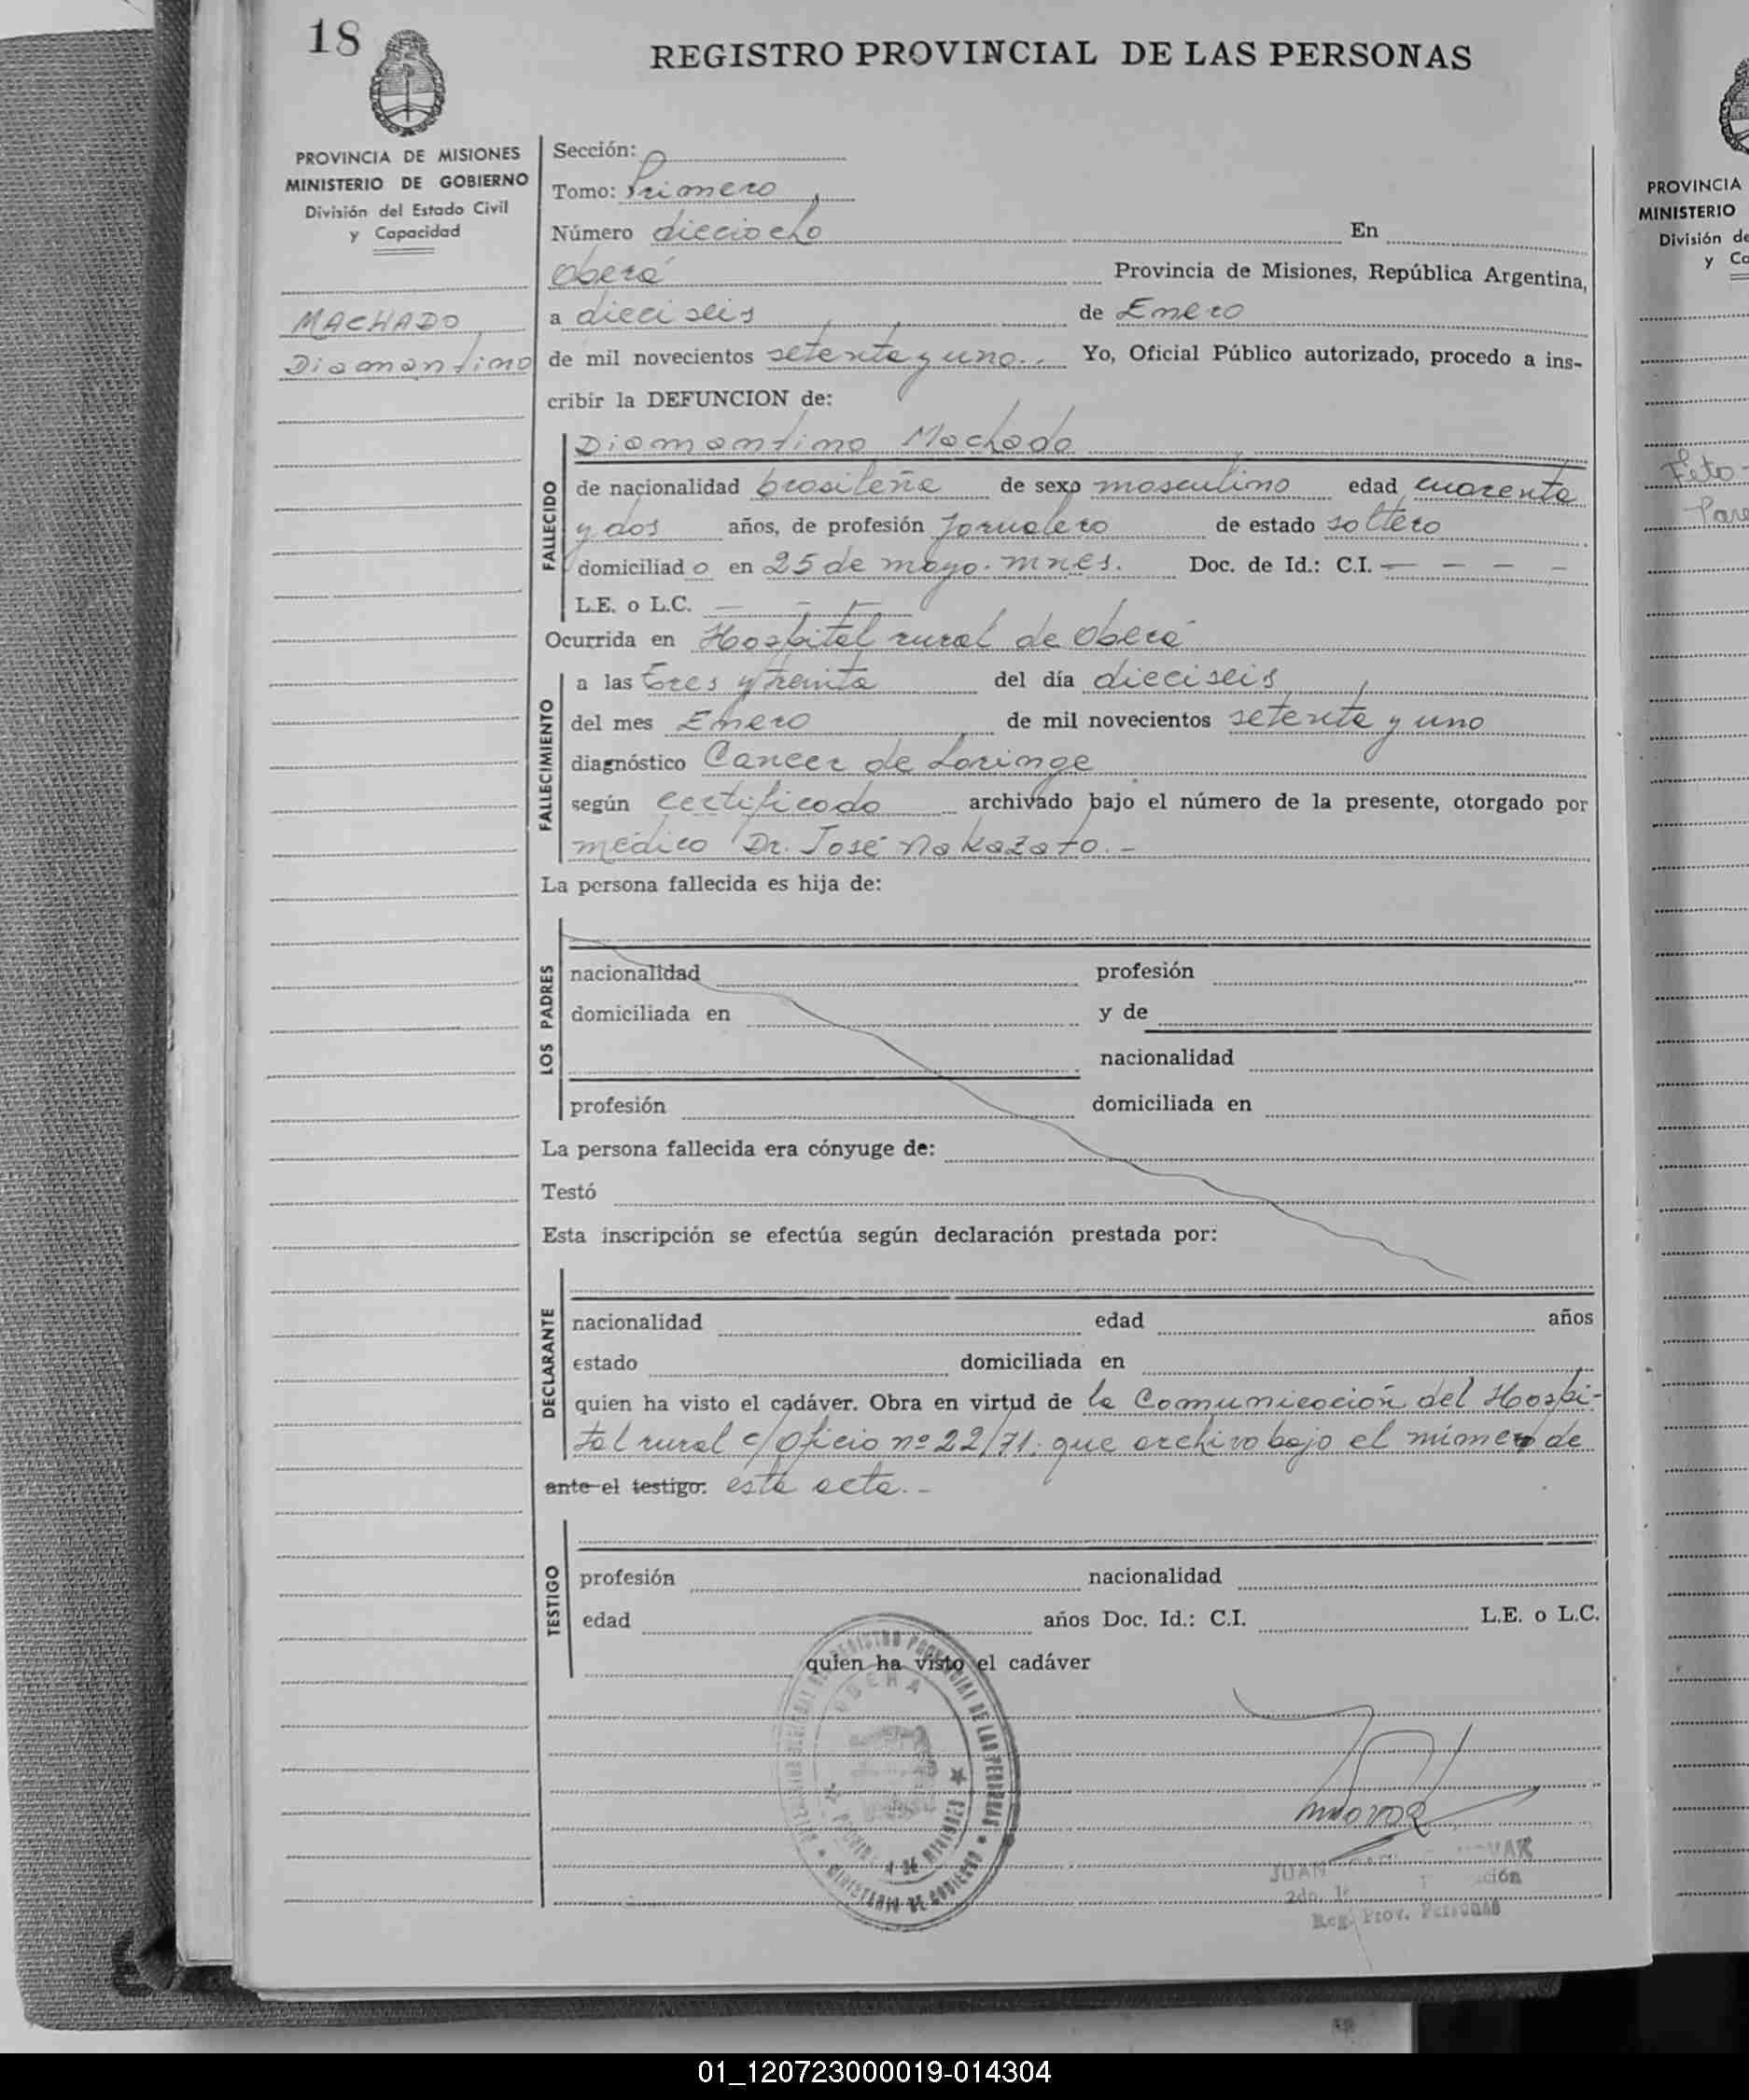 18
REGISTRO PROVINCIAL DE LAS PERSONAS
PROVINCIA DE MISIONES
MINISTERIO DE GOBIERNO
División del Estado Civil
y Capacidad
MACHADO
Diamantino
Sección:
Tomo: Primero
Número dieciocho En
Oberá Provincia de Misiones, República Argentina,
a dieciseis de Enero
de mil novecientos setenta y uno.. Yo, Oficial Público autorizado, procedo a ins-
cribir la DEFUNCION de:
FALLECIDO
Diamantino Machado
de nacionalidad brasileña de sexo masculino edad cuarenta
y dos años, de profesión Jornalero de estado soltero
domiciliado en 25 de mayo. mnes. Doc. de Id.: C.I. — — — —
L.E. o L.C. — — —
Ocurrida en Hospital rural de Oberá
FALLECIMIENTO
a las tres y treinta del día dieciseis
del mes Enero de mil novecientos setenta y uno
diagnóstico Cancer de Laringe
según certificado archivado bajo el número de la presente, otorgado por
médico Dr. José Nakazato.-
La persona fallecida es hija de:
LOS PADRES
nacionalidad profesión
domiciliada en y de
nacionalidad
profesión domiciliada en
La persona fallecida era cónyuge de:
Testó
Esta inscripción se efectúa según declaración prestada por:
DECLARANTE
nacionalidad edad años
estado domiciliada en
quien ha visto el cadáver. Obra en virtud de la Comunicación del Hospi-
tal rural c/Oficio nº 22/71. que archivo bajo el número de
ante el testigo: esta acta.-
TESTIGO
profesión nacionalidad
edad años Doc. Id.: C.I. L.E. o L.C.
quien ha visto el cadáver
REGISTRO PROVINCIAL DE LAS PERSONAS
OBERA
DE MISIONES
MINISTERIO DE GOBIERNO
JUAN
Reg. Prov. Personas
PROVINCIA
MINISTERIO
División de
y Ca
Feto-
01_120723000019-014304